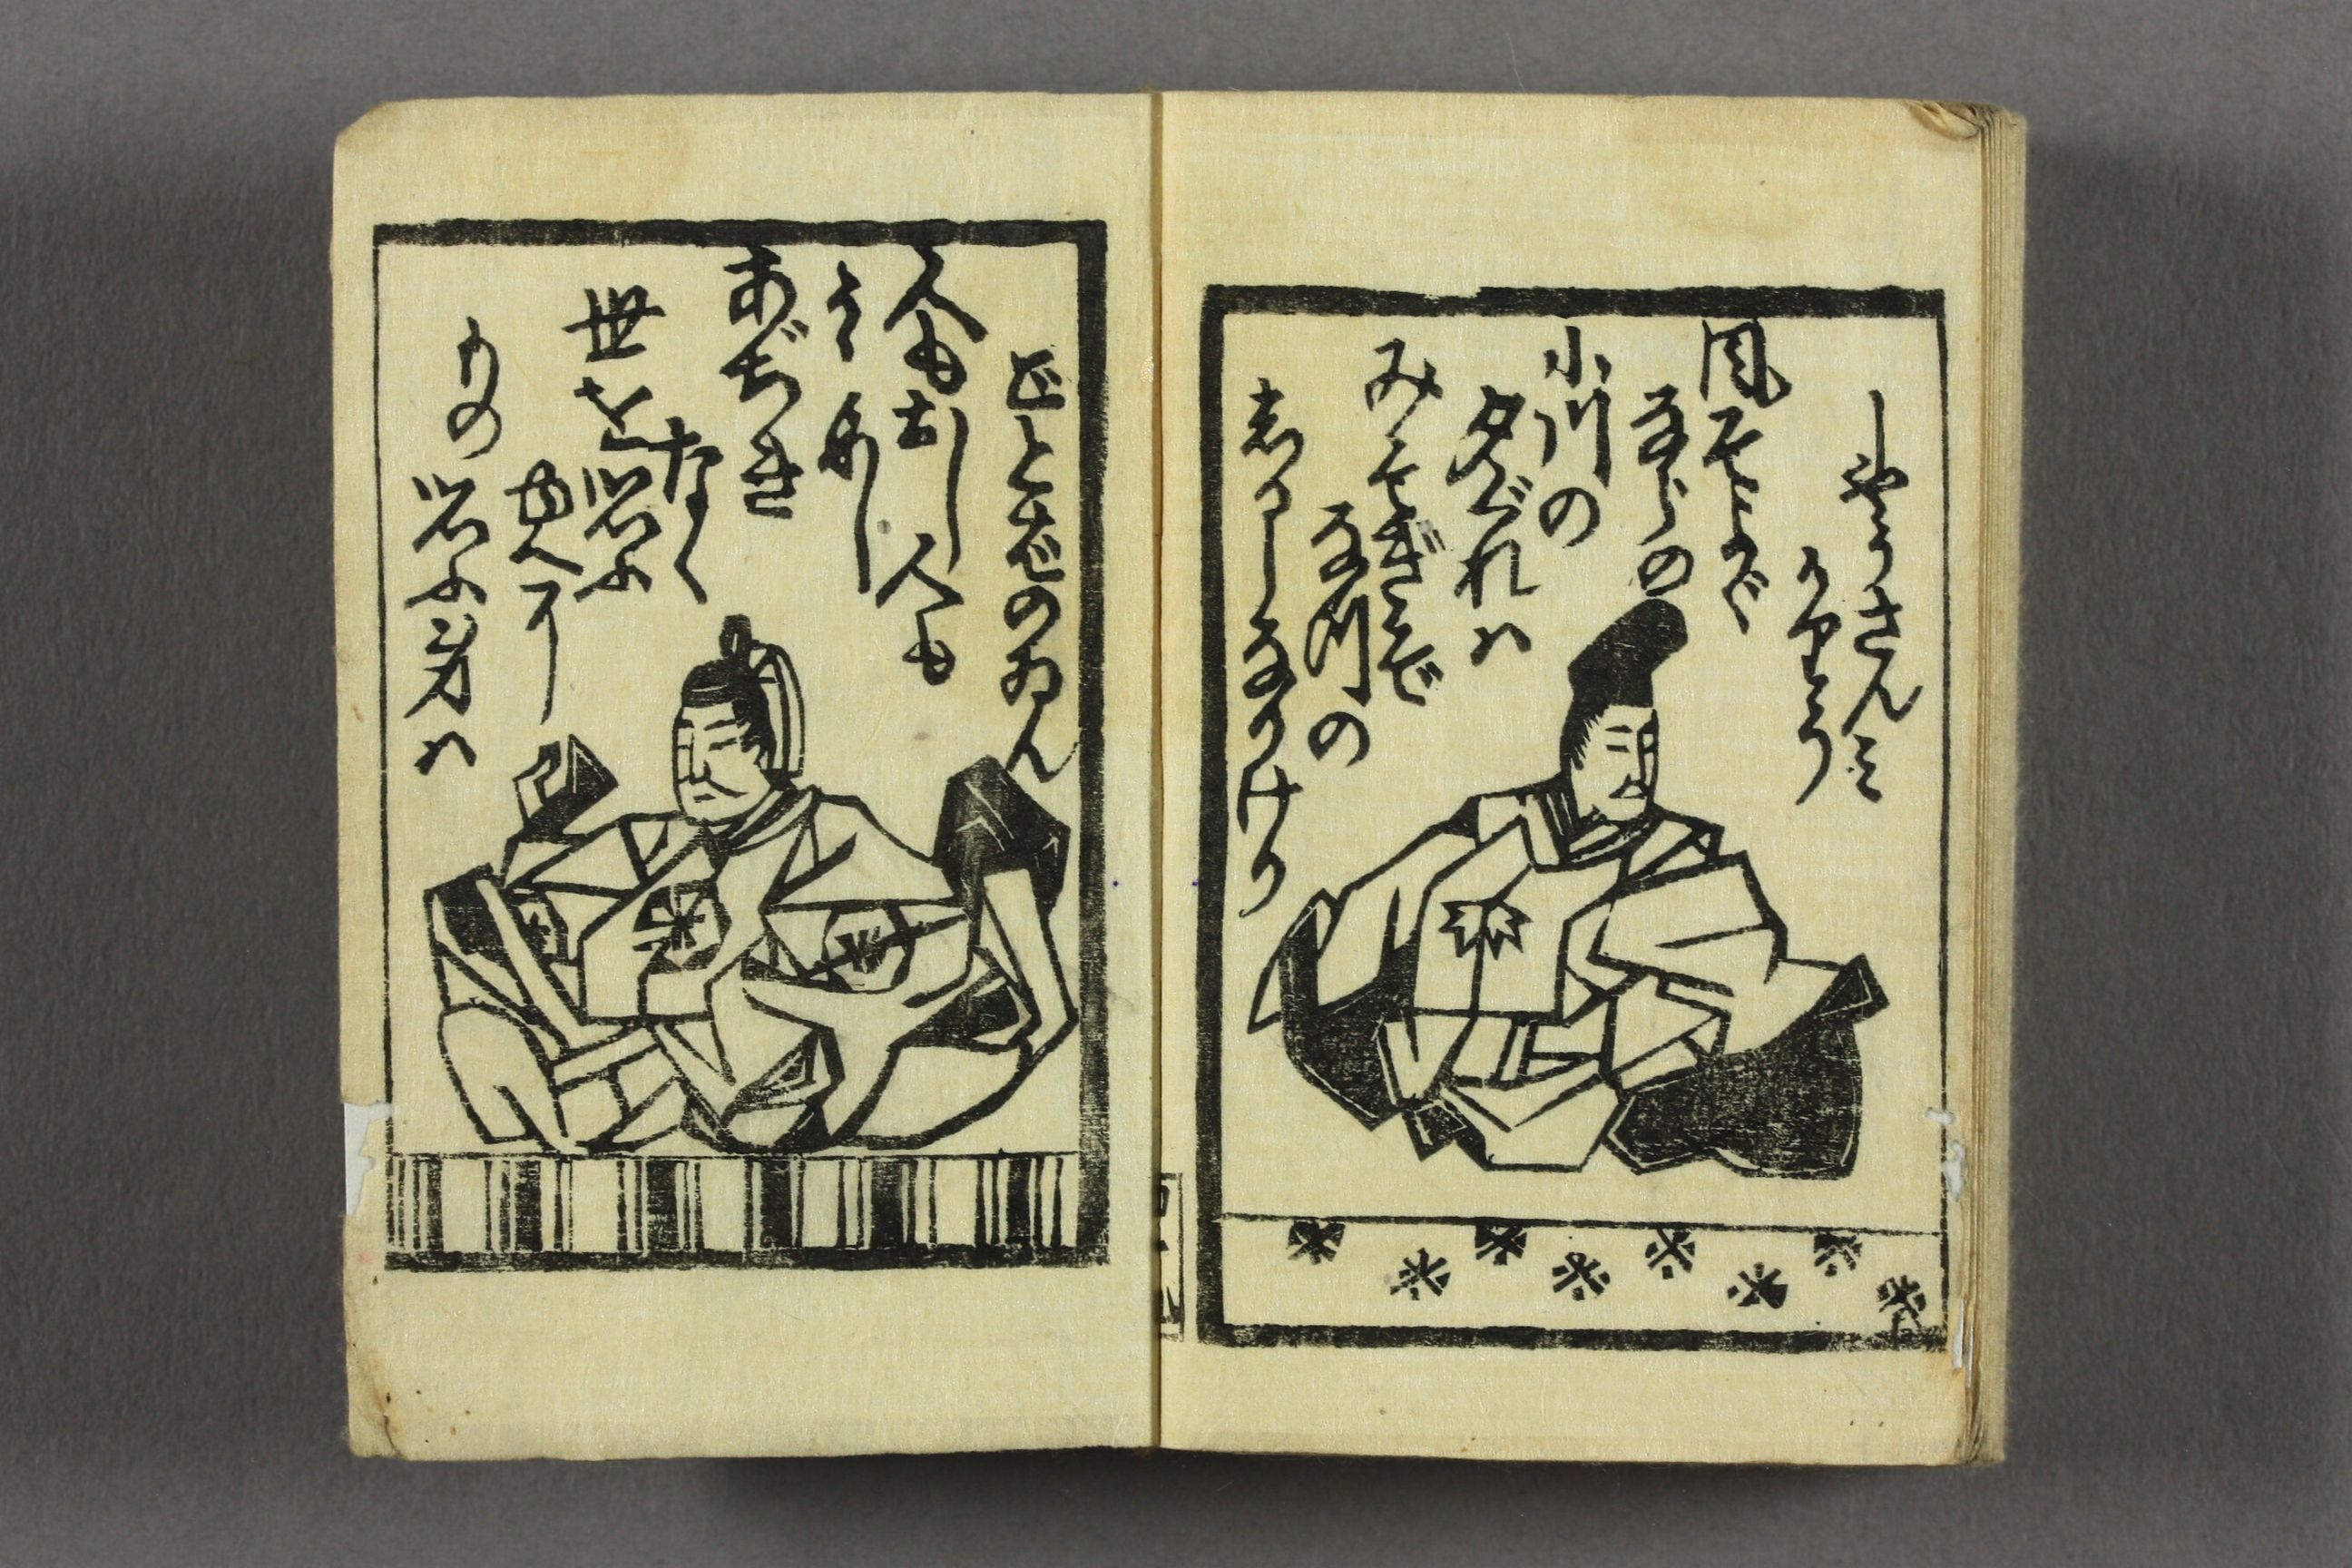 しやうさんミ
風そよぐ
ならの
小川の
夕ぐれハ
みそぎぞ
なつの
志るしなりけり
ごとばのゐん
人もおし人も
うらめし
あぢき
なく
世を思ふ
ゆへに
もの
思ふ身ハ